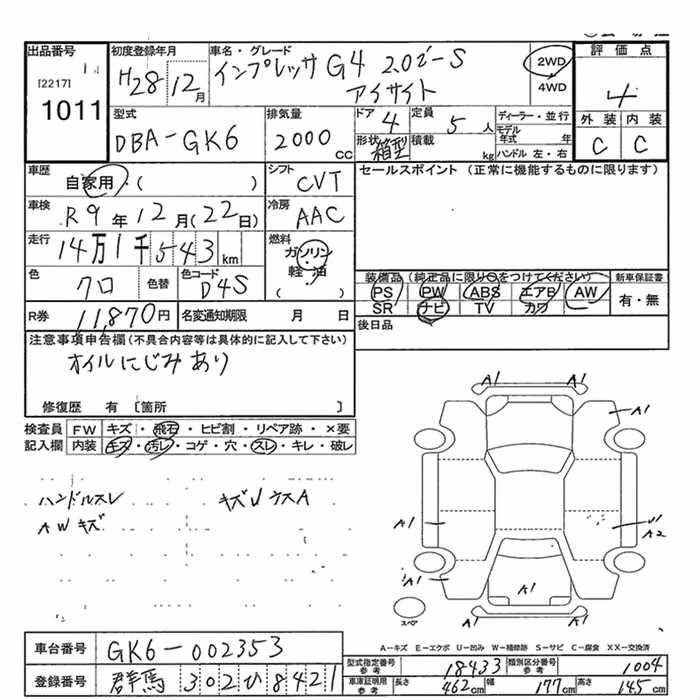 出品番号
[2217] 1
1011
初度登録年月
H28 12月
車名・グレード
インプレッサ G4 2.0i-S
アイサイト
2WD
4WD
評価点
4
外装 内装
C C
型式
DBA-GK6
排気量
2000 CC
ドア 4
定員 5人
形状 箱型
積載 kg
ディーラー・並行
モデル年式 年
ハンドル 左・右
車歴
自家用・( )
シフト
CVT
セールスポイント (正常に機能するものに限ります)
車検
R9年12月(22日)
冷房
AAC
走行
14万1千543km
燃料
ガソリン
軽・油
( )
色
クロ
色替
色コード
D4S
装備品(純正品に限り○をつけてください)
PS PW ABS エアB AW
SR ナビ TV カワ
新車保証書
有・無
R券
11,870円
名変通知期限 月 日
後日品
注意事項申告欄(不具合内容等は具体的に記入して下さい)
オイルにじみあり
修復歴 有 〔箇所 〕
検査員
記入欄
FW キズ・飛石・ヒビ割・リペア跡・×要
内装 キズ・汚レ・コゲ・穴・スレ・キレ・破レ
ハンドルスレ
AWキズ
キズUウスA
A1 A1
A1
A1
U1
A2
A1
A1
スペア
A-キズ E-エクボ U-凹み W-補修跡 S-サビ C-腐食 XX-交換済
車台番号
GK6-002353
登録番号
群馬 302ひ8421
型式指定番号 参考
18433
類別区分番号 参考
1004
車庫証明用 参考
長さ 462cm
幅 177cm
高さ 145cm